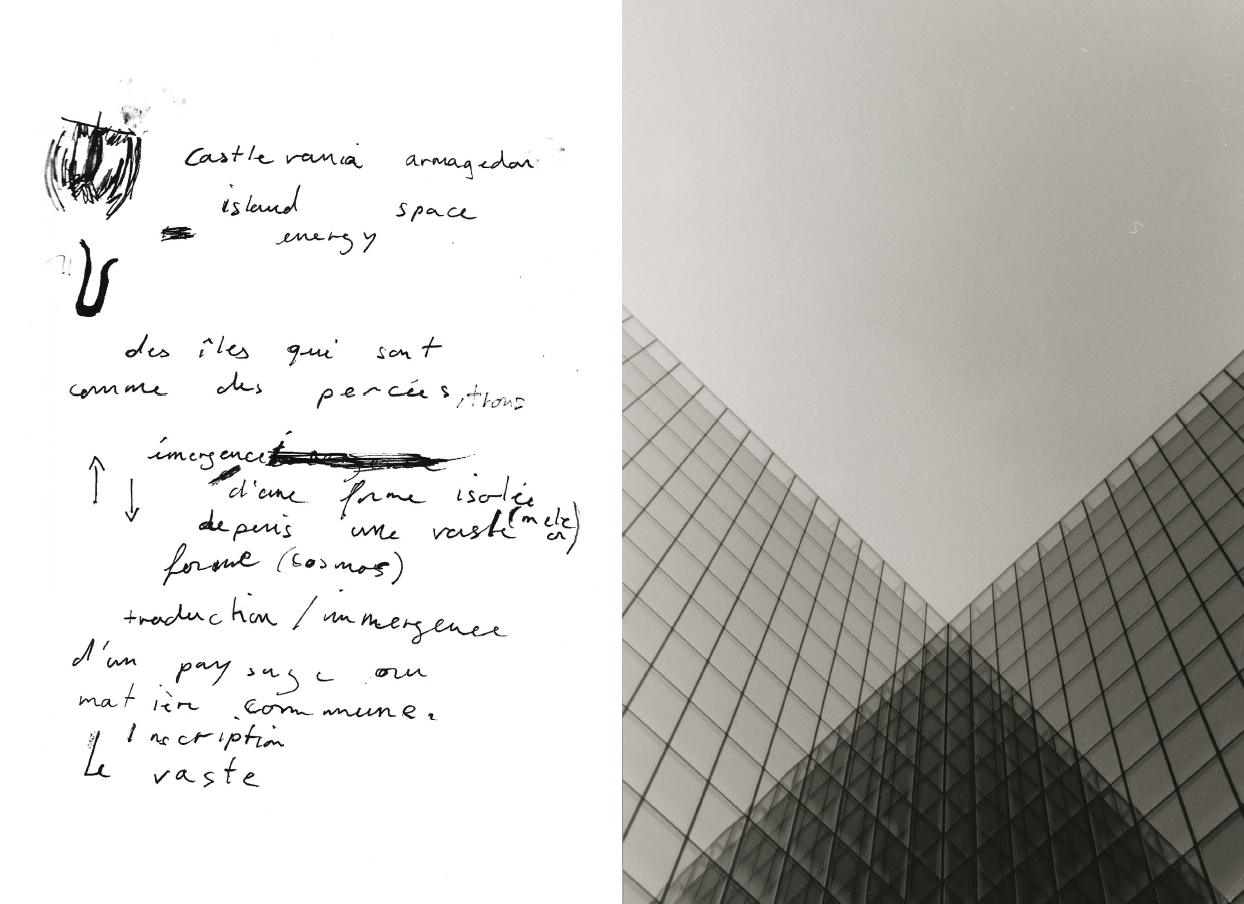 Castle vania armagedon
island space
energy
des îles qui sont
comme des percées
émergence
d'une forme isolée
depuis une vaste
forme (cosmos)
traduction / immergence
d'un paysage ou
matière commune.
Inscription
Le vaste